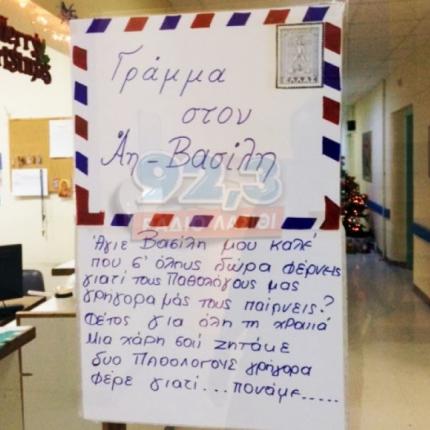 Merry
Christmas
Γράμμα
στον
Άη-Βασίλη
ΕΛΛΑΣ
92,3
ΡΑΔΙΟ ΛΑΣΙΘΙ
Άγιε Βασίλη μου καλέ
που σ' όλους δώρα φέρνεις
γιατί τους Παθολόγους μας
γρήγορα μας τους παίρνεις?
Φέτος για όλη τη χρονιά
Μια χάρη σού ζητάμε
δυο ΠΑΘΟΛΟΓΟΥΣ γρήγορα
φέρε γιατί...πονάμε.....